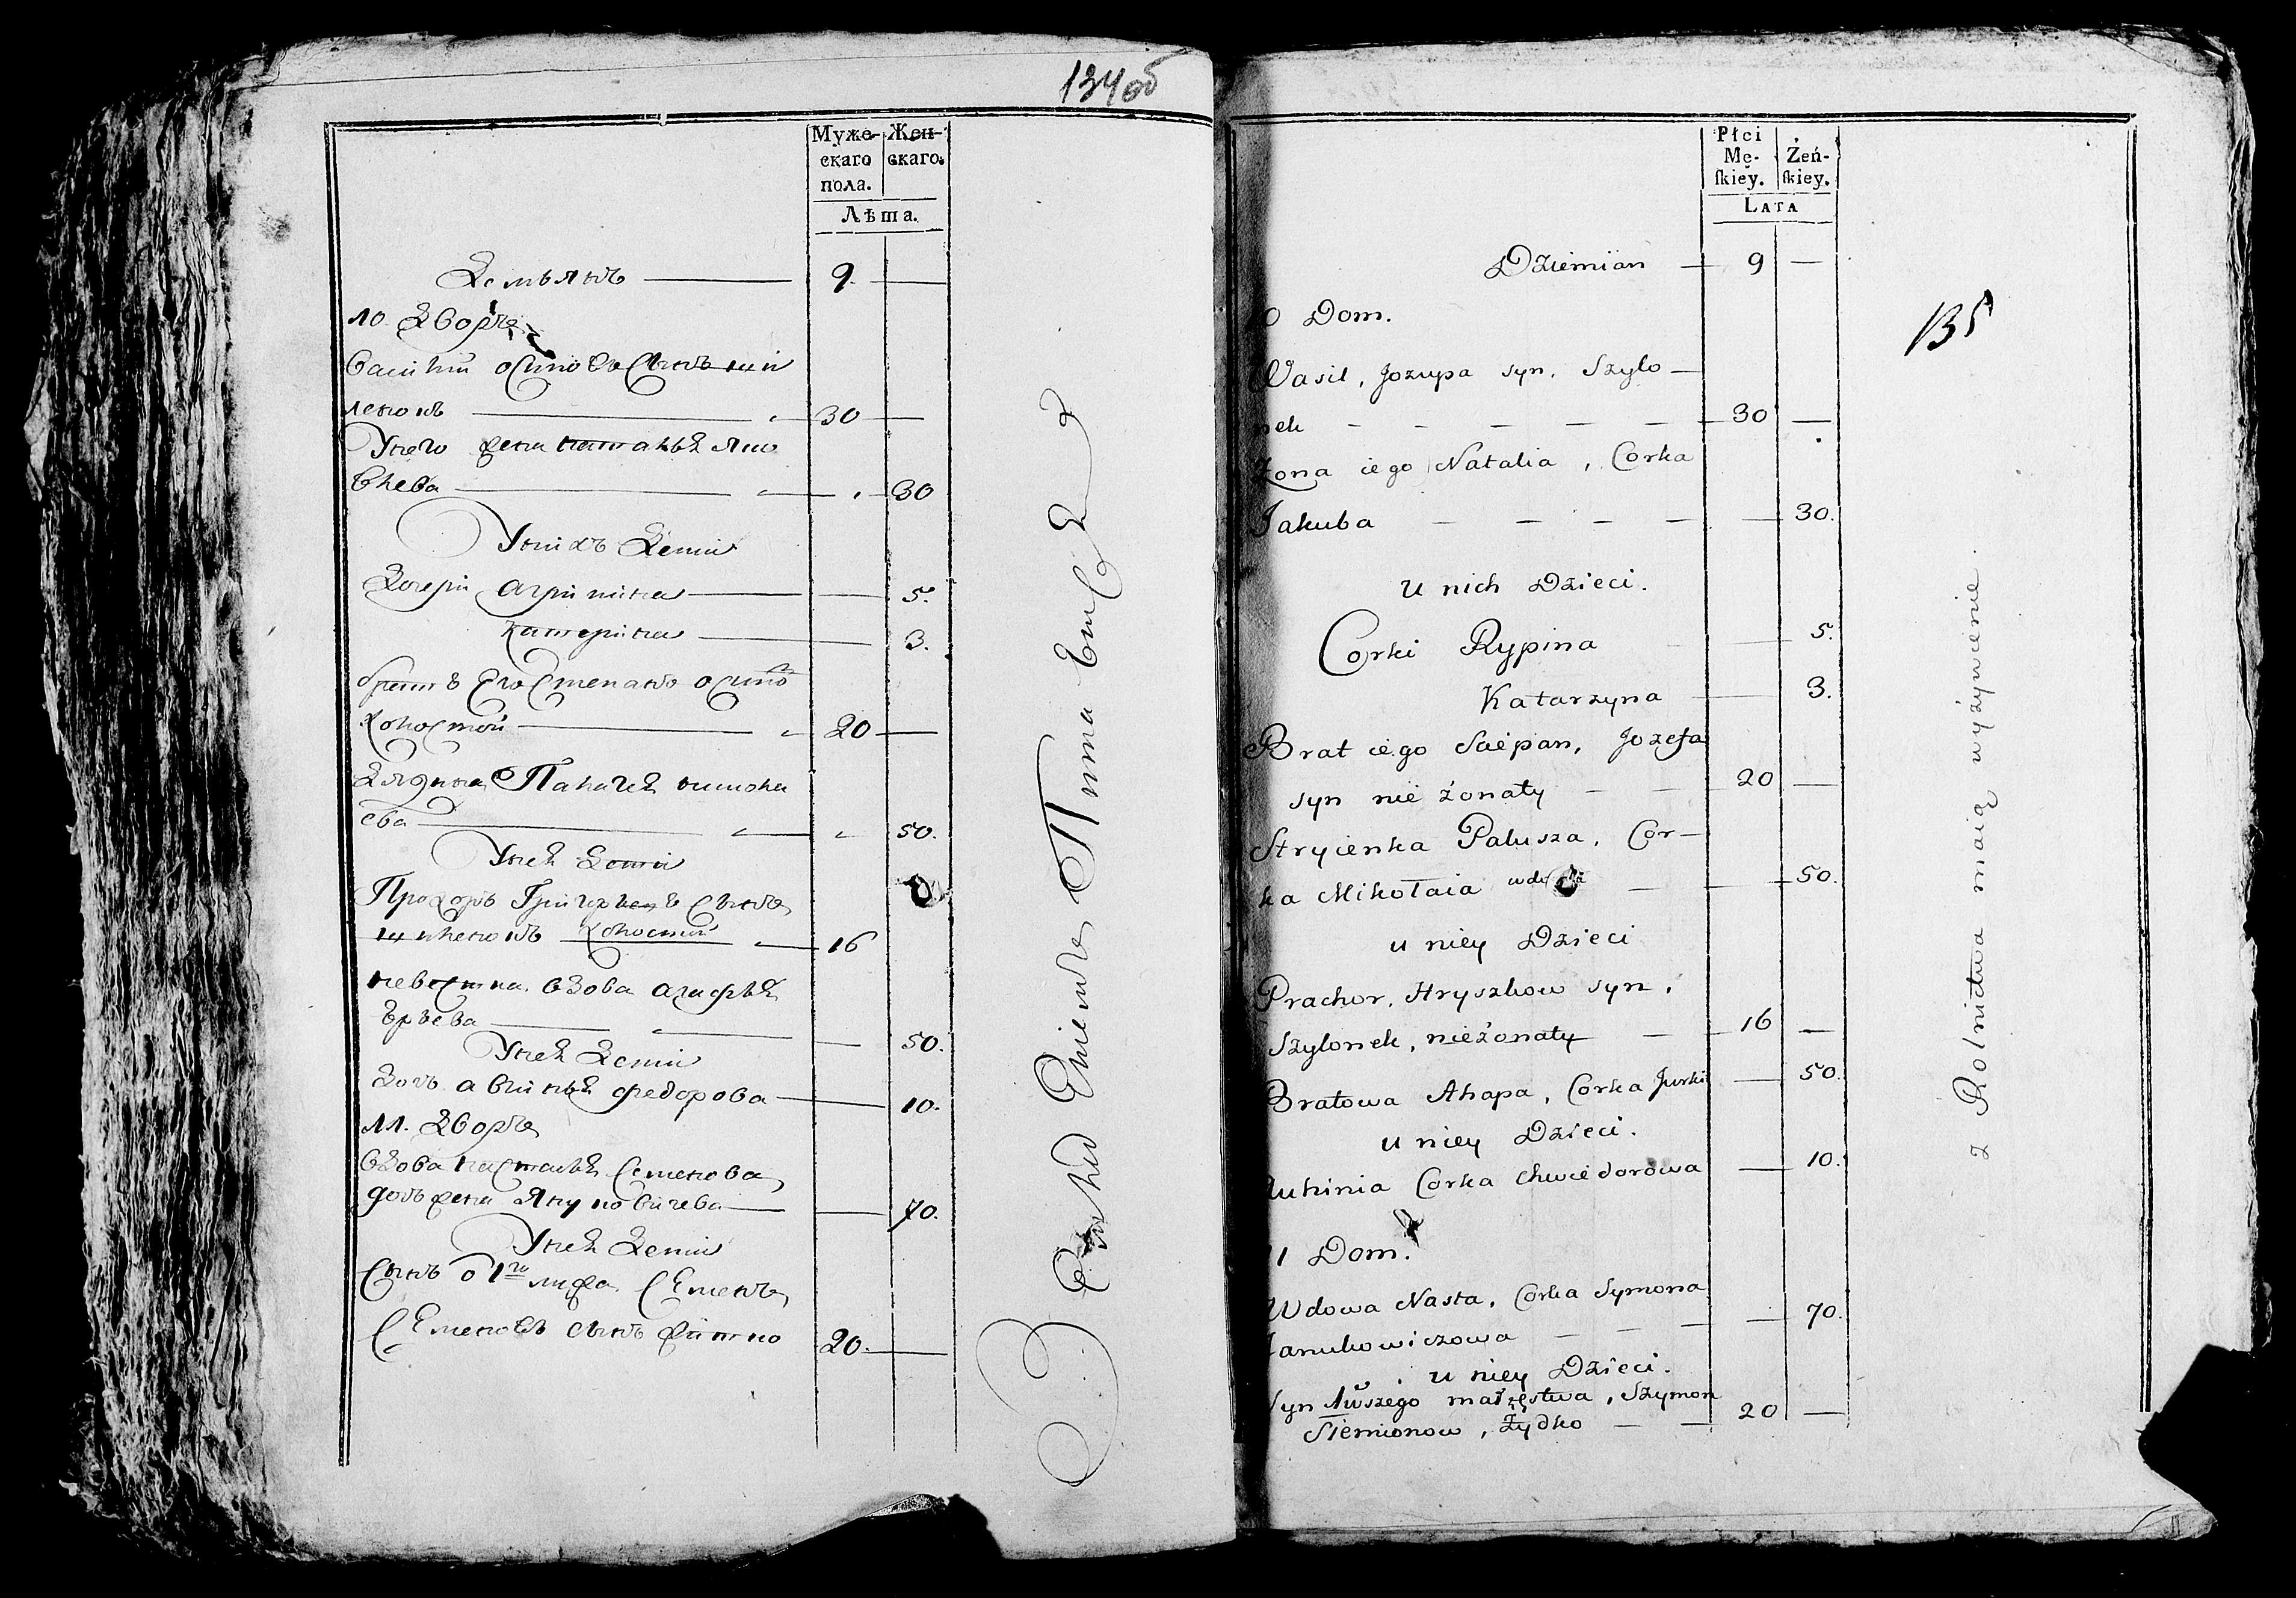 134об
Муже- Жен-
скаго скаго.
пола.
Лѣта.
Демьянъ 9.
10. Дворъ
Василий Осиповъ сынъ ши
леконъ 30
У него жена Наталья Яко
влева 30
У нихъ дети
Дочери Агрипина 5.
Катерина 3.
братъ его Степанъ Осипо
холостой 20
Дядина Палагея Никола
ева 50.
У ней дети
Прохоръ Григорьевъ сынъ
холостой 16
невестка вдова Агафья
Юрьева 50.
У ней дети
дочь Авгинья Федорова 10.
11. Дворъ
Вдова Настасья Семенова
дочь жена Януковичева 70.
У ней дети
Сынъ 1го Семенъ
Семеновъ сынъ 20.
Płci
Mę- Żeń-
skiey. skiey.
LATA
135
Dziemian 9
10 Dom.
Wasil, Jozupa syn, Szylo-
nek 30
Żona iego Natalia, Corka
Jakuba 30.
U nich Dzieci.
Corki Rypina 5.
Katarzyna 3.
Brat iego Sciepan, Jozefa
syn nie żonaty 20
Stryienka Palusza, Cor-
ka Mikołaia 50.
u niey Dzieci
Prachor, Hryszkow syn,
Szylonek, nieżonaty 16
Bratowa Ahapa, Corka Jurki 50.
u niey Dzieci.
Auhinia Corka Chwiedorowa 10.
11 Dom.
Wdowa Nasta, Corka Symona 70.
Janukowiczowa
u niey Dzieci.
Syn 1wszego małżęstwa, Szymon
Siemionow, Żydko 20
z Rolnictwa maią wyżywienie.